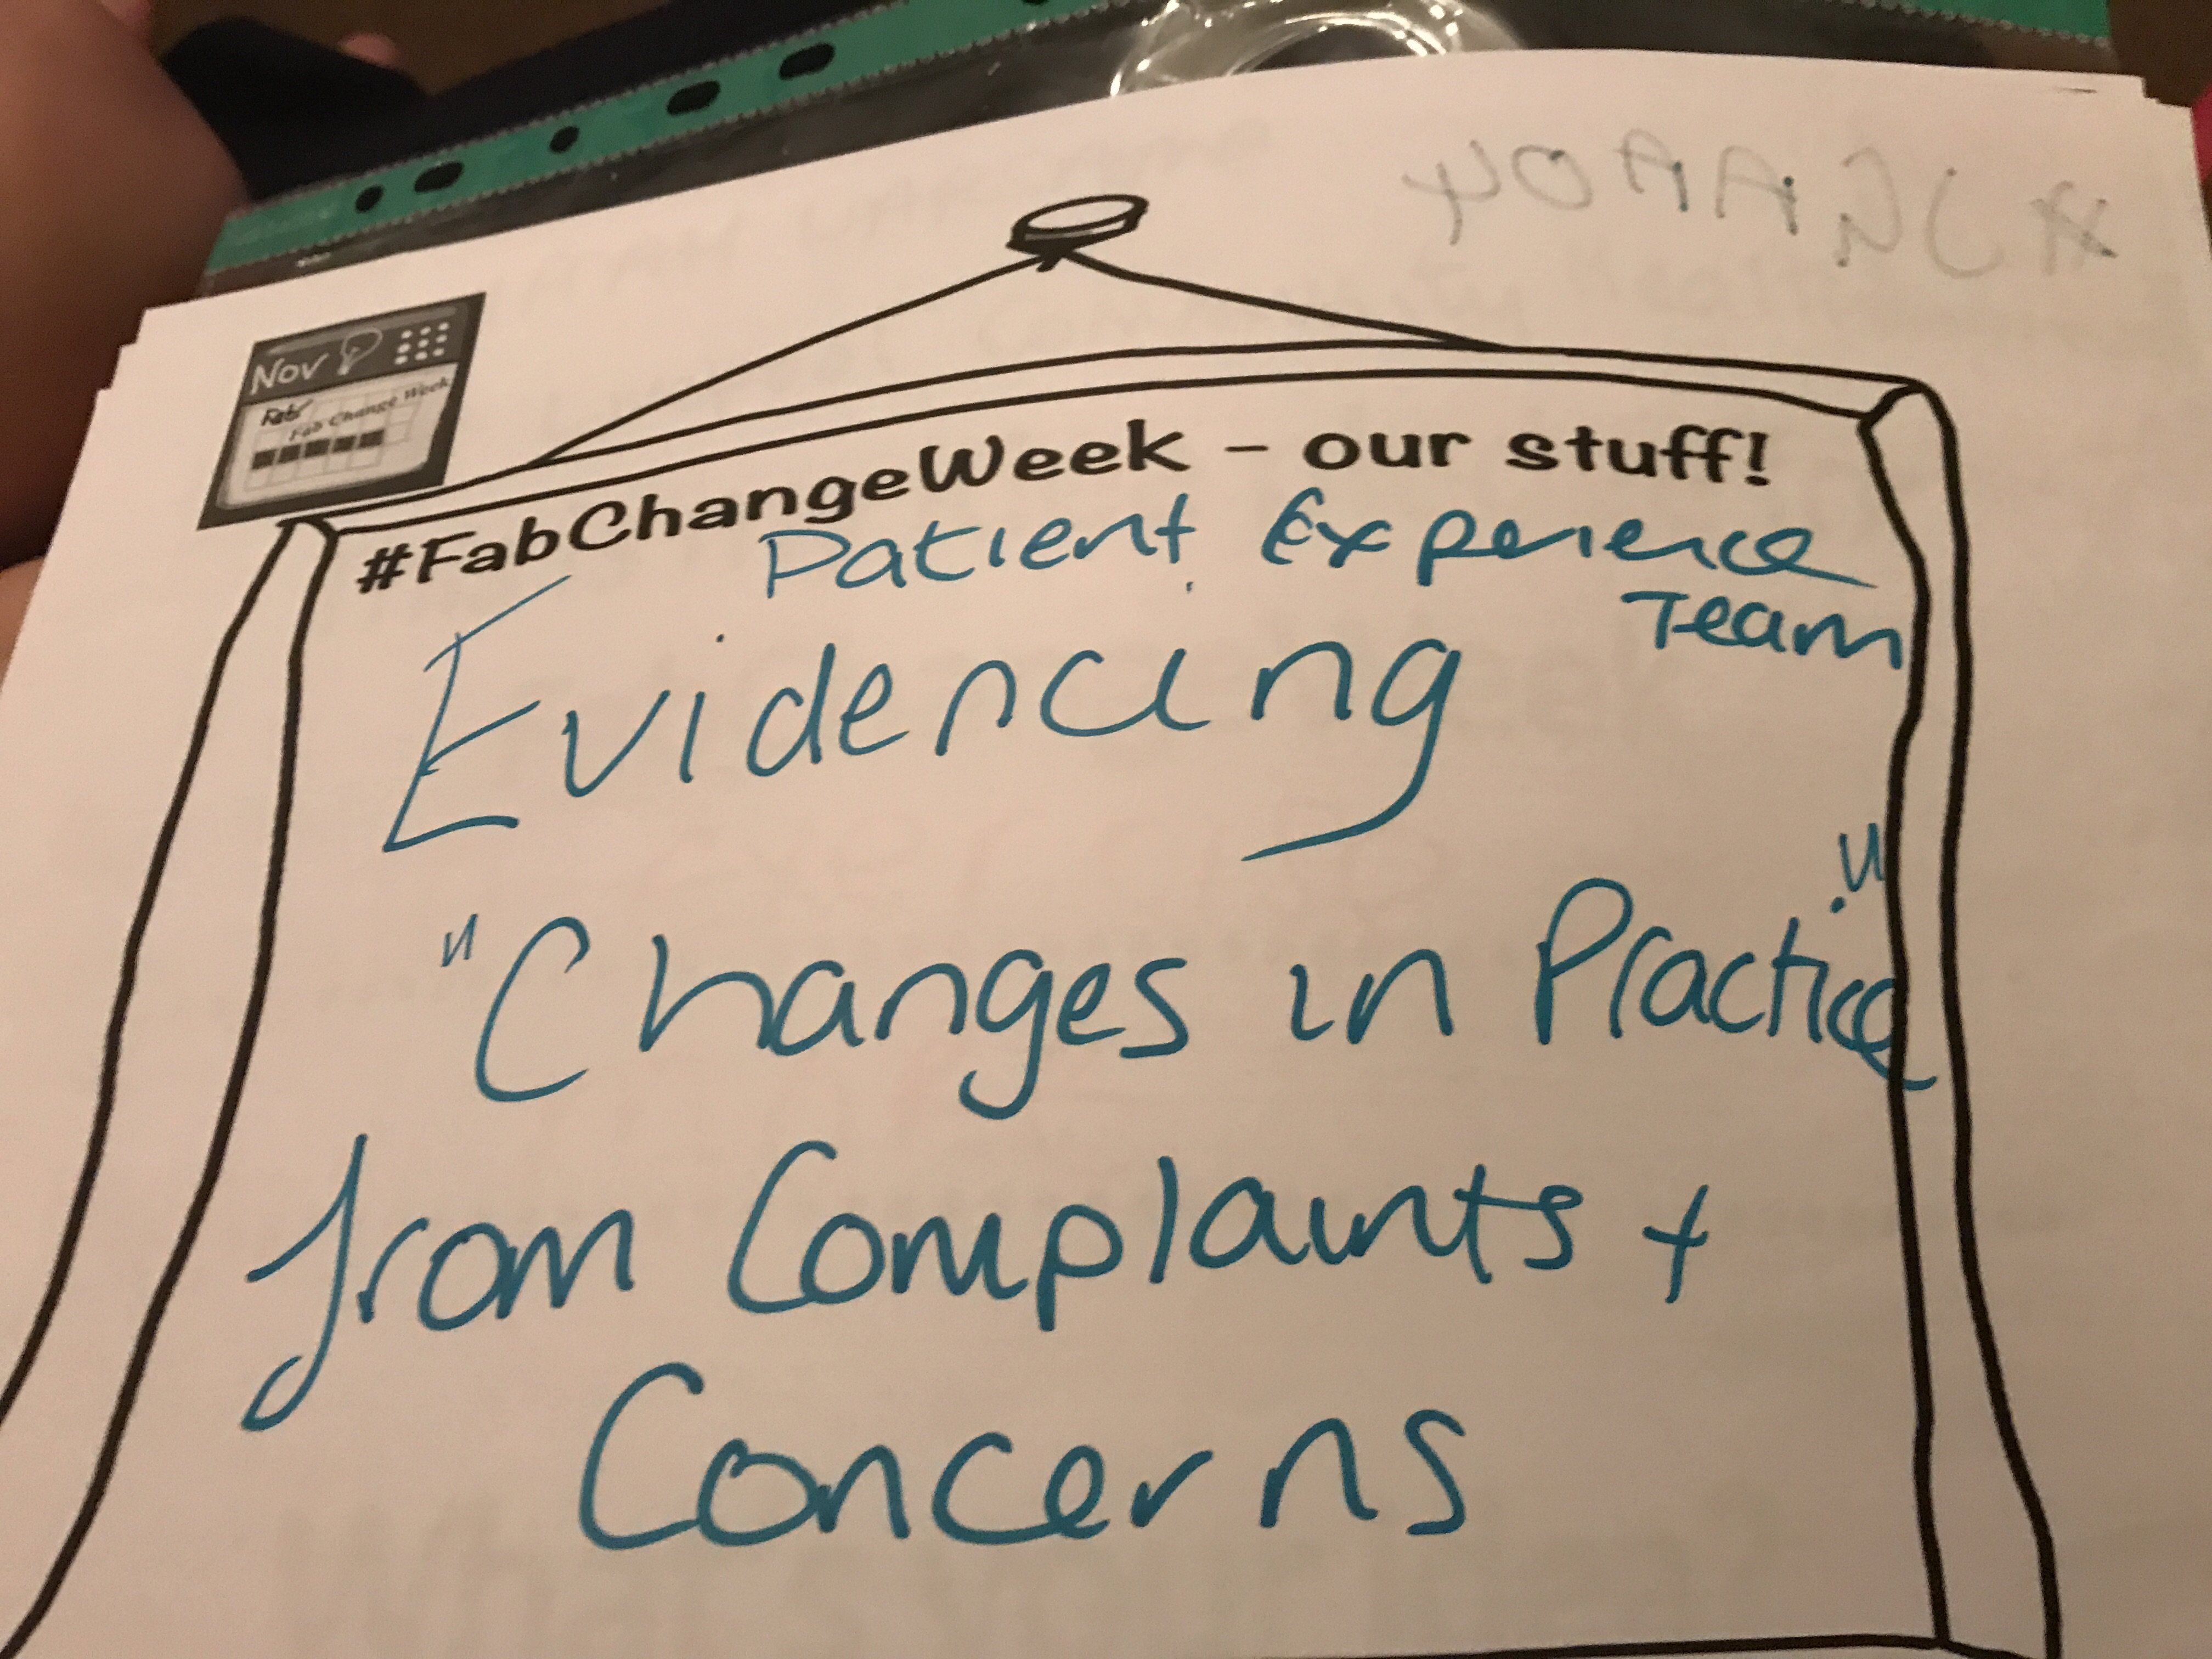 Nov
Fab
Fab Change Week
#FabChangeWeek - our stuff!
Patient Experience
Team
Evidencing
"Changes in Practice"
from Complaints +
Concerns